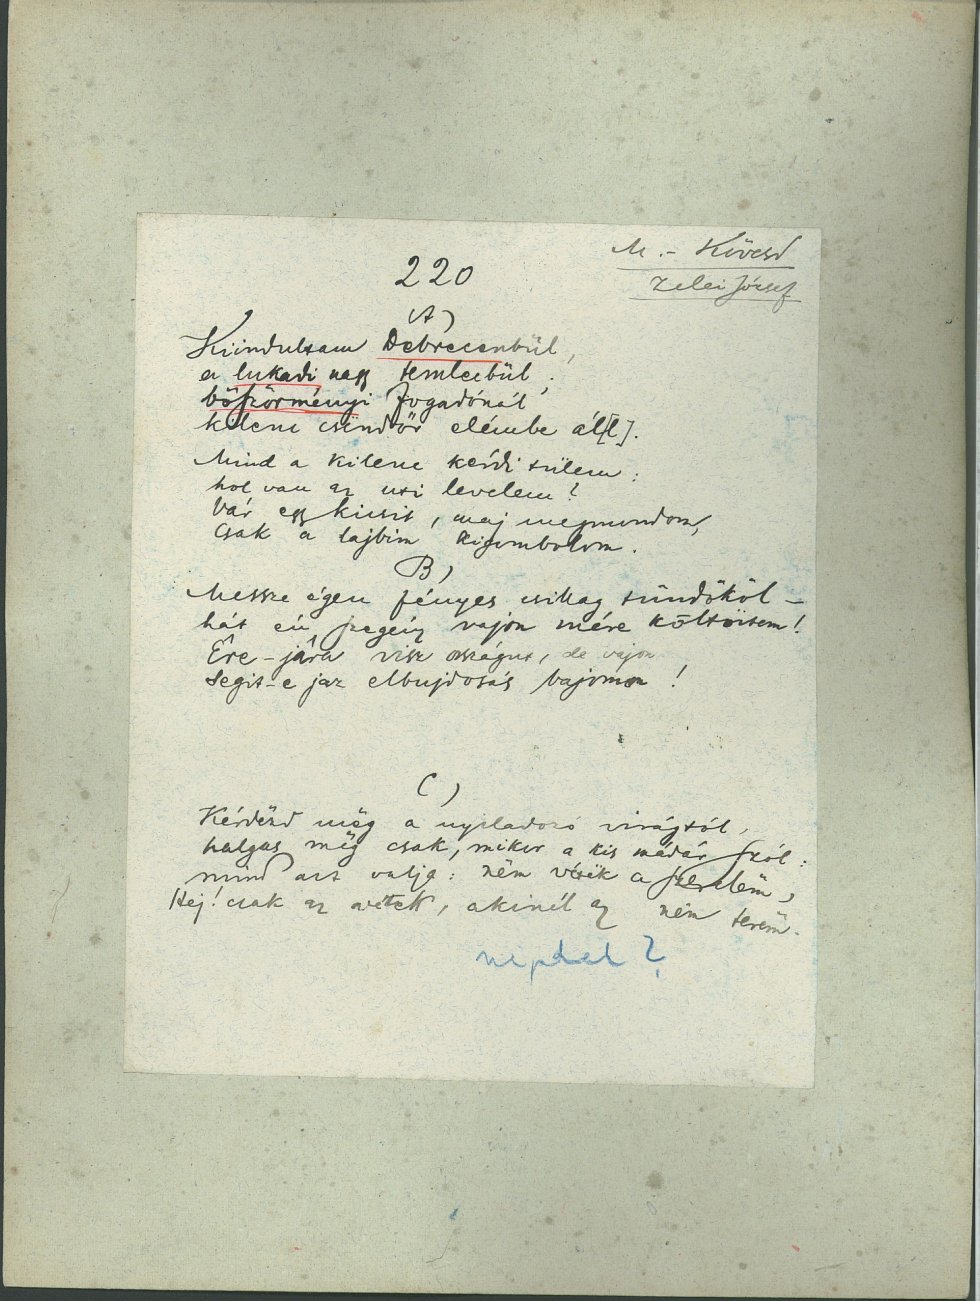 M.-Kövesd
Zelei József
220
A)
Kiindultam Debrecenbül,
a lukadi nagy temlecbül;
böszörményi fogadónál
kilenc csëndőr elémbe ál[l].
Mind a kilenc kérdi tűlem:
hol van az uti levelem?
Vár egy kicsit, maj megmondom,
csak a lajbim kigombolom.
B)
Messze égen fényes csillag tündököl –
hát én szegény vajon mére költöisem!
Ére-jára visz országut, de vajon
segit-e jaz elbujdosás bajomon!
C)
Kérdëzd mëg a nyiladozó virágtól,
halgas mëg csak, mikor a kis madár szól:
mind azt valja: nëm vétëk a szerelëm,
Hej! csak az vétek, akinél az nëm terëm.
népdal?